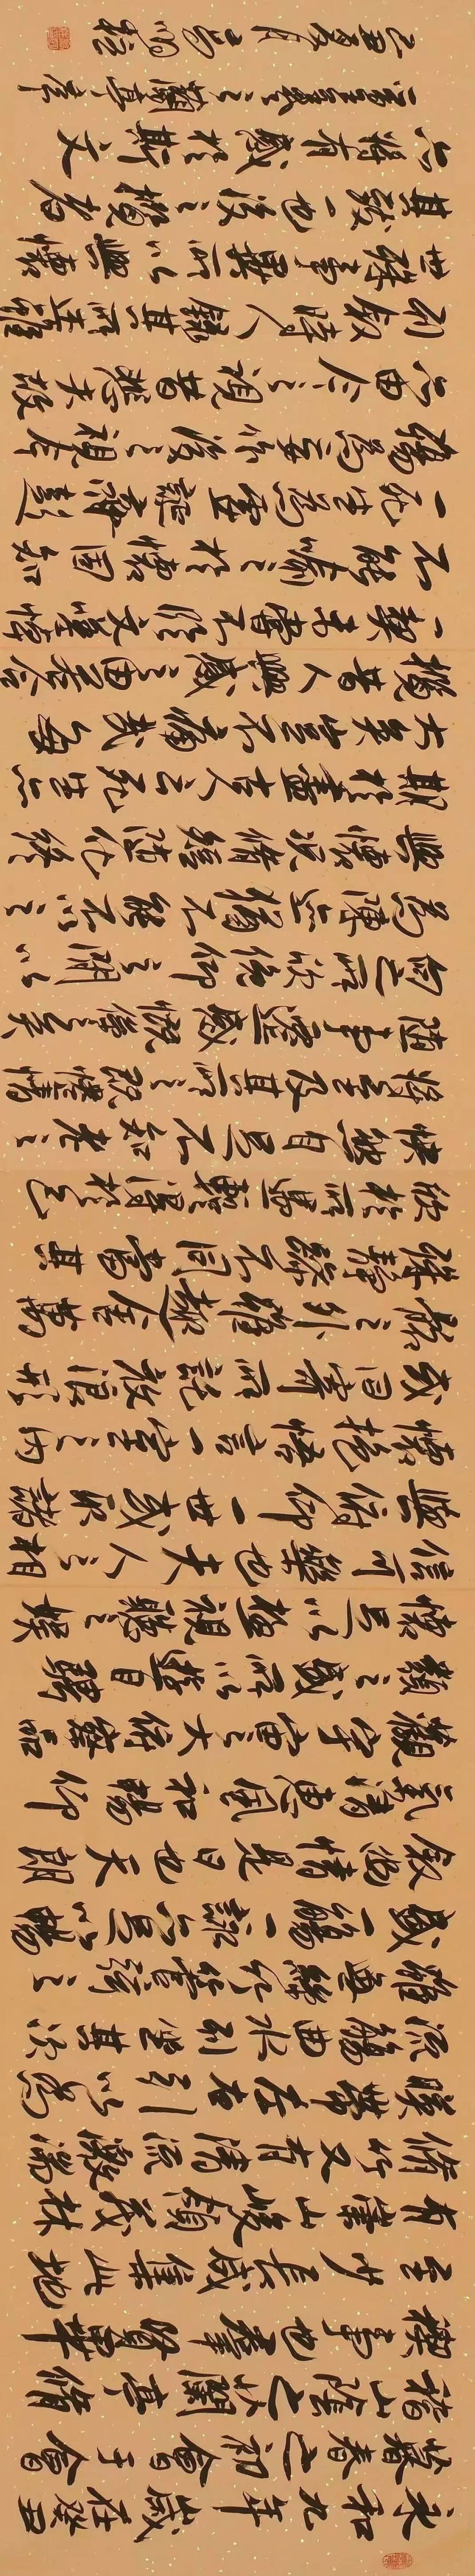 永和九年歲在癸丑
暮春之初會于會
稽山陰之蘭亭脩
禊事也群賢畢
至少長咸集此地
有崇山峻領茂林
脩竹又有清流激湍
暎帶左右引以為
流觴曲水列坐其次
雖無絲竹管弦之
盛一觴一詠亦足以暢
叙幽情是日也天朗
氣清惠風和暢仰
觀宇宙之大俯察品
類之盛所以遊目騁
懷足以極視聽之娛
信可樂也夫人之相
與俯仰一世或取諸
懷抱悟言一室之內
或因寄所託放浪形
骸之外雖趣舍萬
殊靜躁不同當其
欣於所遇暫得於己
快然自足不知老之
將至及其所之既惓情
隨事遷感慨係之矣
向之所欣俛仰之間以
為陳迹猶不能不以之
興懷況脩短隨化終
期於盡古人云死生亦
大矣豈不痛哉每
攬昔人興感之由若合
一契未嘗不臨文嗟悼
不能喻之於懷固知
一死生為虛誕齊彭
殤為妄作後之視今
亦由今之視昔悲夫故
列叙時人錄其所述雖
世殊事異所以興懷
其致一也後之攬者
亦將有感於斯文
王羲之蘭亭序